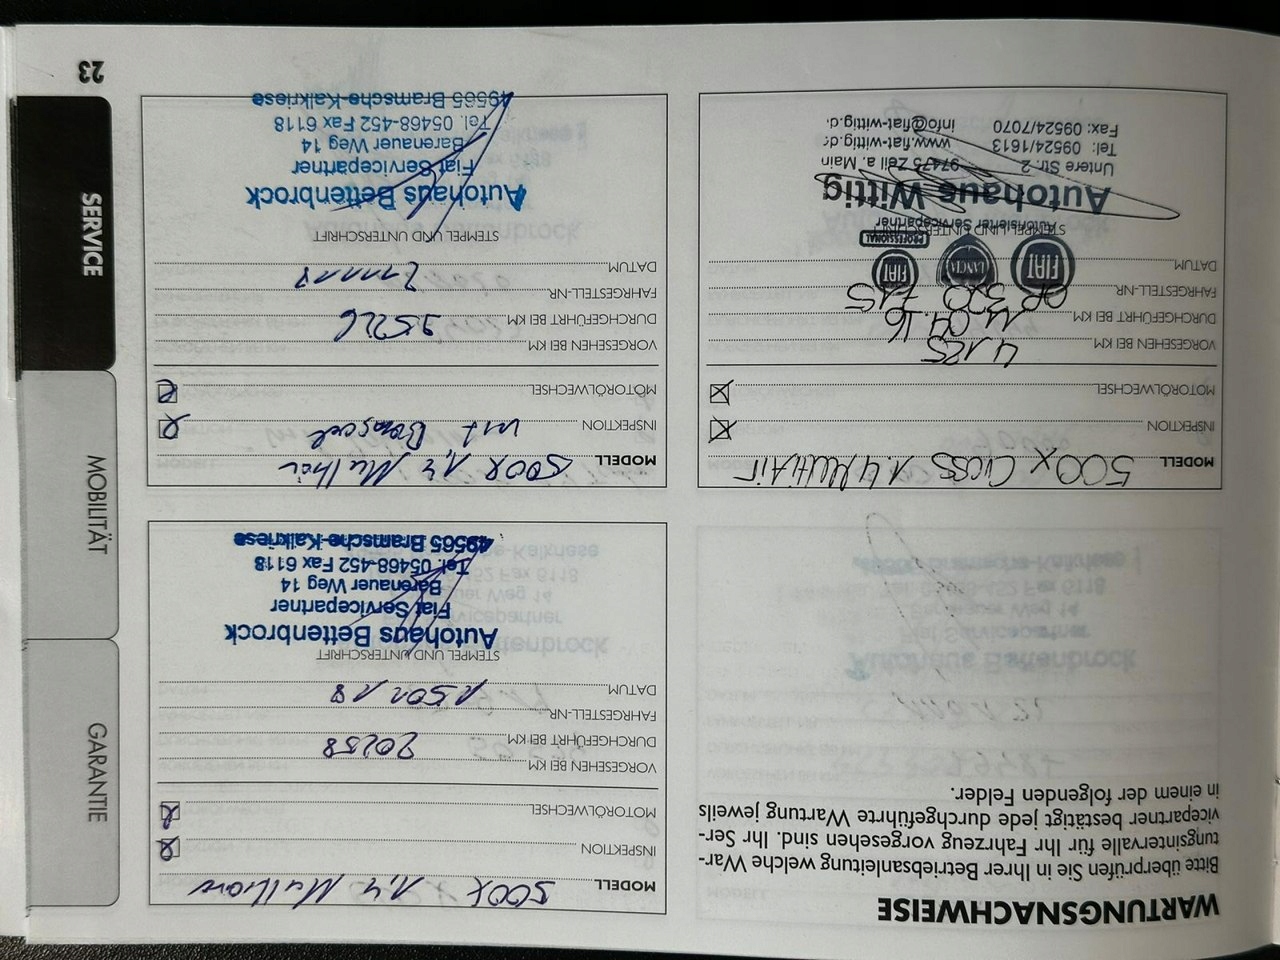 WARTUNGSNACHWEISE
Bitte überprüfen Sie in Ihrer Betriebsanleitung welche War-
tungsintervalle für Ihr Fahrzeug vorgesehen sind. Ihr Ser-
vicepartner bestätigt jede durchgeführte Wartung jeweils
in einem der folgenden Felder.
MODELL 500X 1,4
INSPEKTION
MOTORÖLWECHSEL
VORGESEHEN BEI KM
DURCHGEFÜHRT BEI KM 20258
FAHRGESTELL-NR.
DATUM
STEMPEL UND UNTERSCHRIFT
Autohaus Bettenbrock
Fiat Servicepartner
Barenauer Weg 14
Tel. 05468-452 Fax 6118
49565 Bramsche-Kalkriese
MODELL 500X Cross 1.4 MultiAir
INSPEKTION
MOTORÖLWECHSEL
VORGESEHEN BEI KM 4.185
DURCHGEFÜHRT BEI KM 11.04.16
FAHRGESTELL-NR.
DATUM
STEMPEL UND UNTERSCHRIFT
FIAT LANCIA FIAT PROFESSIONAL
Autorisierter Servicepartner
Autohaus Wittig
Untere Str. 2 97475 Zeil a. Main
Tel: 09524/1613 www.fiat-wittig.d
Fax: 09524/7070 info@fiat-wittig.d
MODELL 500X 1,4
INSPEKTION
MOTORÖLWECHSEL
VORGESEHEN BEI KM
DURCHGEFÜHRT BEI KM 35226
FAHRGESTELL-NR.
DATUM
STEMPEL UND UNTERSCHRIFT
Autohaus Bettenbrock
Fiat Servicepartner
Barenauer Weg 14
Tel. 05468-452 Fax 6118
49565 Bramsche-Kalkriese
23
SERVICE
MOBILITÄT
GARANTIE